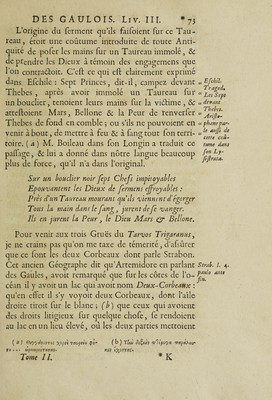 DES GAULOIS. LIV. III. *73
L'origine du serment qu'ils faisoient sur ce Tau-
reau, étoit une coûtume introduite de toute Anti-
quité de poser les mains sur un Taureau immolé, &
de prendre les Dieux à témoin des engagemens que
l'on contractoit. C'est ce qui est clairement exprimé
dans Eschile : Sept Princes, dit-il, campez devant
Thebes, après avoir immolé un Taureau sur
un bouclier, tenoient leurs mains sur la victime, &
attestoient Mars, Bellone & la Peur de renverser
Thebes de fond en comble ; ou s'ils ne pouvoient en
venir à bout, de mettre à feu & à sang tout son terri-
toire. (a) M. Boileau dans son Longin a traduit ce
passage, & lui a donné dans nôtre langue beaucoup
plus de force, qu'il n'a dans l'original.
Eschil.
Traged.
Les Sept
devant
Thebes.
Aristo-
phane par-
le aussi de
cette coû-
tume dans
son Ly-
sistrata.
Sur un bouclier noir sept Chefs impitoyables
Epouvantent les Dieux de sermens effroyables :
Près d'un Taureau mourant qu'ils viennent d'égorger
Tous la main dans le sang, jurent de se vanger.
Ils en jurent la Peur, le Dieu Mars & Bellone.
Pour venir aux trois Gruës du Tarvos Trigaranus,
je ne crains pas qu'on me taxe de témerité, d'assûrer
que ce sont les deux Corbeaux dont parle Strabon.
Cet ancien Géographe dit qu'Artemidore en parlant
des Gaules, avoit remarqué que sur les côtes de l'o-
céan il y avoit un lac qui avoit nom Deux-Corbeaux :
qu'en effet il s'y voyoit deux Corbeaux, dont l'aîle
droite tiroit sur le blanc ; (b) que ceux qui avoient
des droits litigieux sur quelque chose, se rendoient
au lac en un lieu élevé, où les deux parties mettoient
Strab. l. 4.
paulo ante
fin.
Tome II. *K